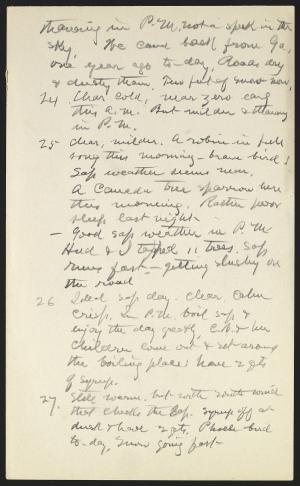 thawing in P.M. not a speck in the
sky. We came back from Ga,
one year ago to-day, Roads dry
& dusty then. Two feet of snow now.
24. Clear cold, near zero early
this a.m. But milder & thawing
in P.M.
25 Clear, milder. A robin in full
song this morning - brave bird!
Sap weather seems near.
A Canada tree sparrow here
this morning. Rather poor
sleep last night -
- Good sap weather in P.M.
Hud & I tapped 11 trees. Sap
runs fast - getting slushy on
the road
26 Ideal sap day. Clear, calm
crisp, in P.M. boil sap &
enjoy the day greatly, C.B. & her
children come out & sit around
the boiling place; have 2 qts
of syrup.
27. Still warm. but with south wind
that checks the sap. Syrup off at
dusk & have 2 qts, Phoebe bird
to-day, Snow going fast -